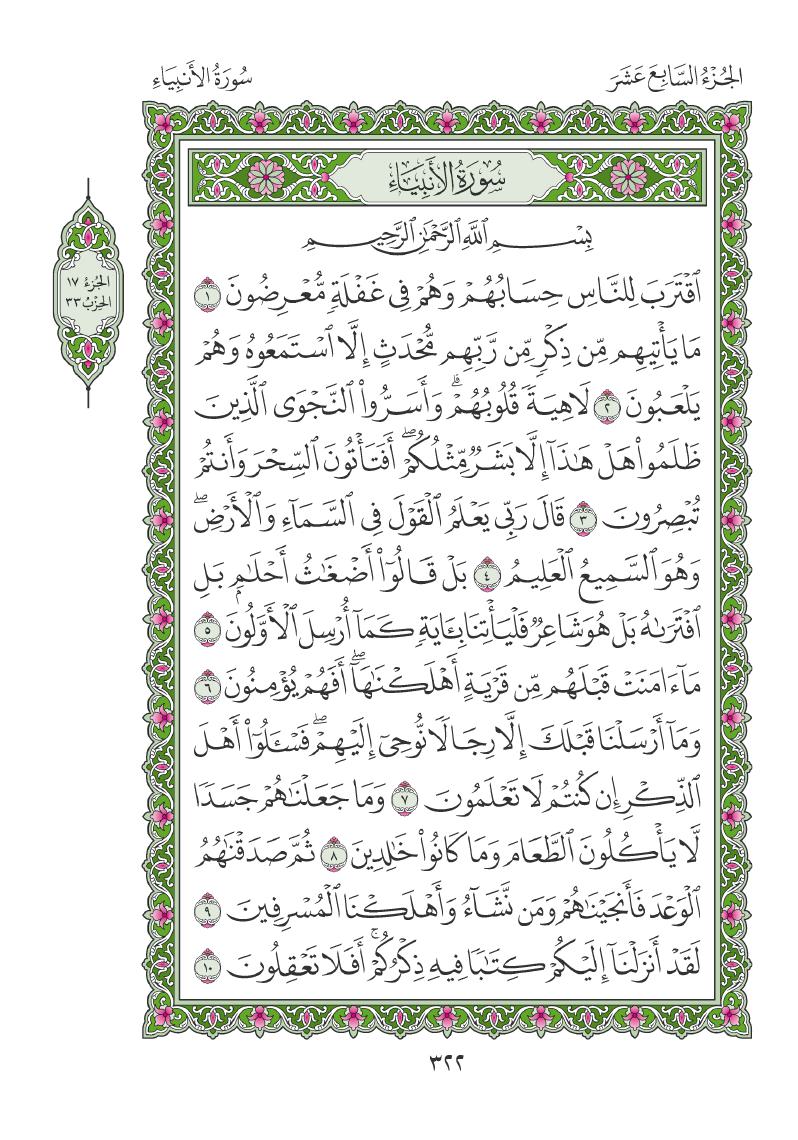 الجُزْءُ السَّابِعَ عَشَرَ
سُورَةُ الأَنبِيَاءِ
سُورَةُ الأَنبِيَاءِ
الجُزءُ ١٧
الحِزْبُ ٣٣
بِسْمِ ٱللَّهِ ٱلرَّحْمَٰنِ ٱلرَّحِيمِ
ٱقْتَرَبَ لِلنَّاسِ حِسَابُهُمْ وَهُمْ فِى غَفْلَةٍ مُّعْرِضُونَ ١
مَا يَأْتِيهِم مِّن ذِكْرٍ مِّن رَّبِّهِم مُّحْدَثٍ إِلَّا ٱسْتَمَعُوهُ وَهُمْ
يَلْعَبُونَ ٢ لَاهِيَةً قُلُوبُهُمْ ۗ وَأَسَرُّوا۟ ٱلنَّجْوَى ٱلَّذِينَ
ظَلَمُوا۟ هَلْ هَٰذَآ إِلَّا بَشَرٌ مِّثْلُكُمْ ۖ أَفَتَأْتُونَ ٱلسِّحْرَ وَأَنتُمْ
تُبْصِرُونَ ٣ قَالَ رَبِّى يَعْلَمُ ٱلْقَوْلَ فِى ٱلسَّمَآءِ وَٱلْأَرْضِ ۖ
وَهُوَ ٱلسَّمِيعُ ٱلْعَلِيمُ ٤ بَلْ قَالُوٓا۟ أَضْغَٰثُ أَحْلَٰمٍۭ بَلِ
ٱفْتَرَىٰهُ بَلْ هُوَ شَاعِرٌ فَلْيَأْتِنَا بِـَٔايَةٍ كَمَآ أُرْسِلَ ٱلْأَوَّلُونَ ٥
مَآ ءَامَنَتْ قَبْلَهُم مِّن قَرْيَةٍ أَهْلَكْنَٰهَآ ۖ أَفَهُمْ يُؤْمِنُونَ ٦
وَمَآ أَرْسَلْنَا قَبْلَكَ إِلَّا رِجَالًا نُّوحِىٓ إِلَيْهِمْ ۖ فَسْـَٔلُوٓا۟ أَهْلَ
ٱلذِّكْرِ إِن كُنتُمْ لَا تَعْلَمُونَ ٧ وَمَا جَعَلْنَٰهُمْ جَسَدًا
لَّا يَأْكُلُونَ ٱلطَّعَامَ وَمَا كَانُوا۟ خَٰلِدِينَ ٨ ثُمَّ صَدَقْنَٰهُمُ
ٱلْوَعْدَ فَأَنجَيْنَٰهُمْ وَمَن نَّشَآءُ وَأَهْلَكْنَا ٱلْمُسْرِفِينَ ٩
لَقَدْ أَنزَلْنَآ إِلَيْكُمْ كِتَٰبًا فِيهِ ذِكْرُكُمْ ۖ أَفَلَا تَعْقِلُونَ ١٠
٣٢٢